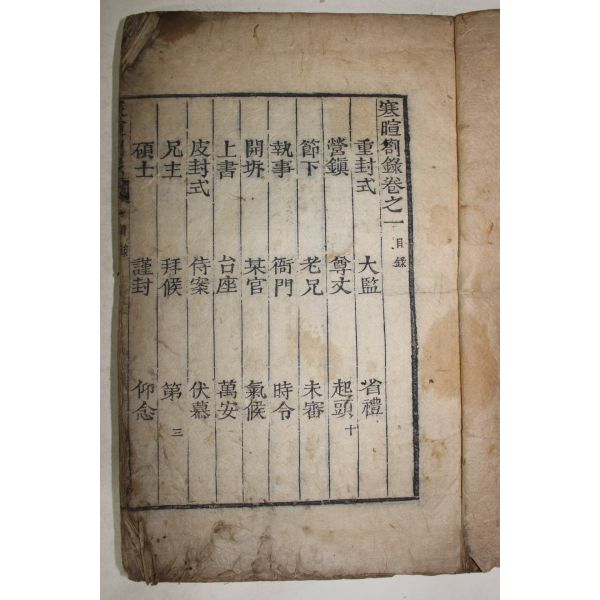 寒暄劄錄卷之一 目錄
重封式 大監 省禮
營鎭 尊丈 起頭 十
節下 老兄 未審
執事 衙門 時令
開坼 某官 氣候
上書 台座 萬安
皮封式 侍案 伏慕
兄主 拜候 第 三
碩士 謹封 仰念